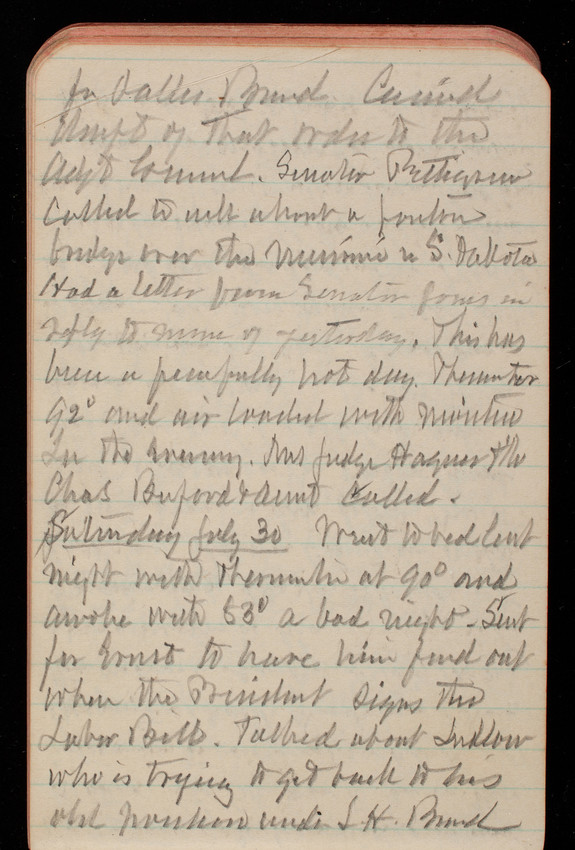 for Dalles Board. Carried
that order to the
Adjt General. Senator Pettigrew
called to ask about a pontoon
bridge over the Missouri in S. Dakota
Had a letter from Senator Jones in
reply to mine of yesterday. This has
been a fearfully hot day. Thermometer
92° and air loaded with moisture
In the evening. Mrs Judge Hagner & Mr
Chas Buford & Aunt called.
Saturday July 30 Went to bed last
night with thermometer at 90° and
awoke with 83° a bad night. Sent
for Ernst to have him find out
when the President signs the
Labor Bill. Talked about Ludlow
who is trying to get back to his
old position under L. H. Board